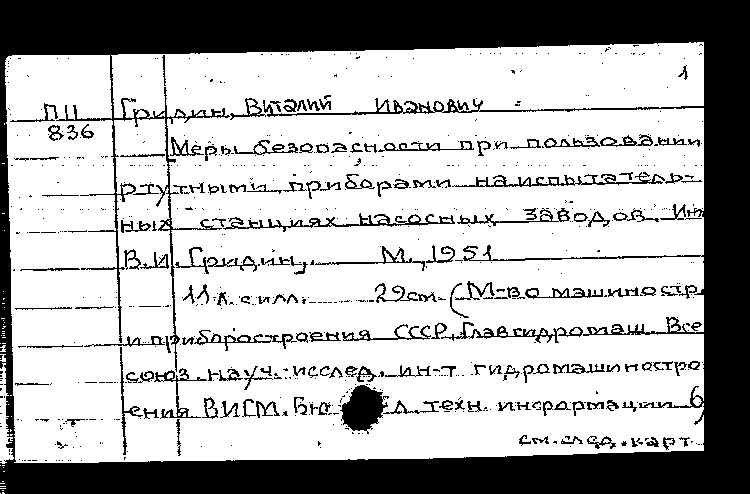 1
ПП Гридин, Виталий Иванович
836
Меры безопасности при пользовании
ртутными приборами на испытатель-
ных станциях насосных заводов. Инж
В.И. Гридин, М., 1951
11 л. с илл. 29 см (М-во машиностр.
и приборостроения СССР, Главгидромаш. Все
союз. науч.-исслед. ин-т гидромашиностро
ения ВИГМ. Бю л. техн. информации
см. след. карт